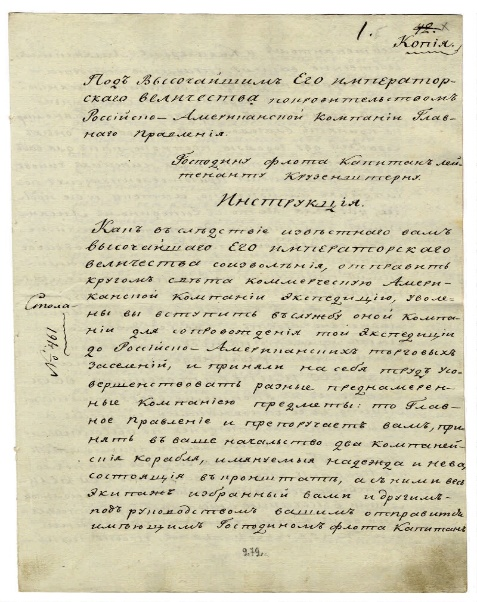 1.
Копія.
Подъ Высочайшимъ Его император-
скаго величества покровительствомъ
Россійско-Американской Компаніи Глав-
наго Правленія.
Господину флота Капитанъ лей-
тенанту Крузенштерну.
Инструкція.
Какъ въ слѣдствіе извѣстнаго вамъ
высочайшаго Его императорскаго
величества соизволѣнія, отправить
кругомъ свѣта коммерческую Амери-
канской Компаніи Экспедицію, уволе-
ны вы вступить въ службу оной Компа-
ніи для сопровожденія той Экспедиціи
до Россійско-Американскихъ торговыхъ
заселеній, и приняли на себя трудъ усо-
вершенствовать разные преднамерен-
ные Компаніею предметы: то Глав-
ное Правленіе и препоручаетъ вамъ, при-
нять въ ваше начальство два Компаней-
скія корабля, имянуемыя надежда и нева,
состоящія въ кронштатѣ, а съ ними весь
Экипажъ избранный вами и другимъ-
подъ руководствомъ вашимъ отправитьсѣ
имѣющимъ Господиномъ флота Капитанъ
Стола-
№ 461
272.